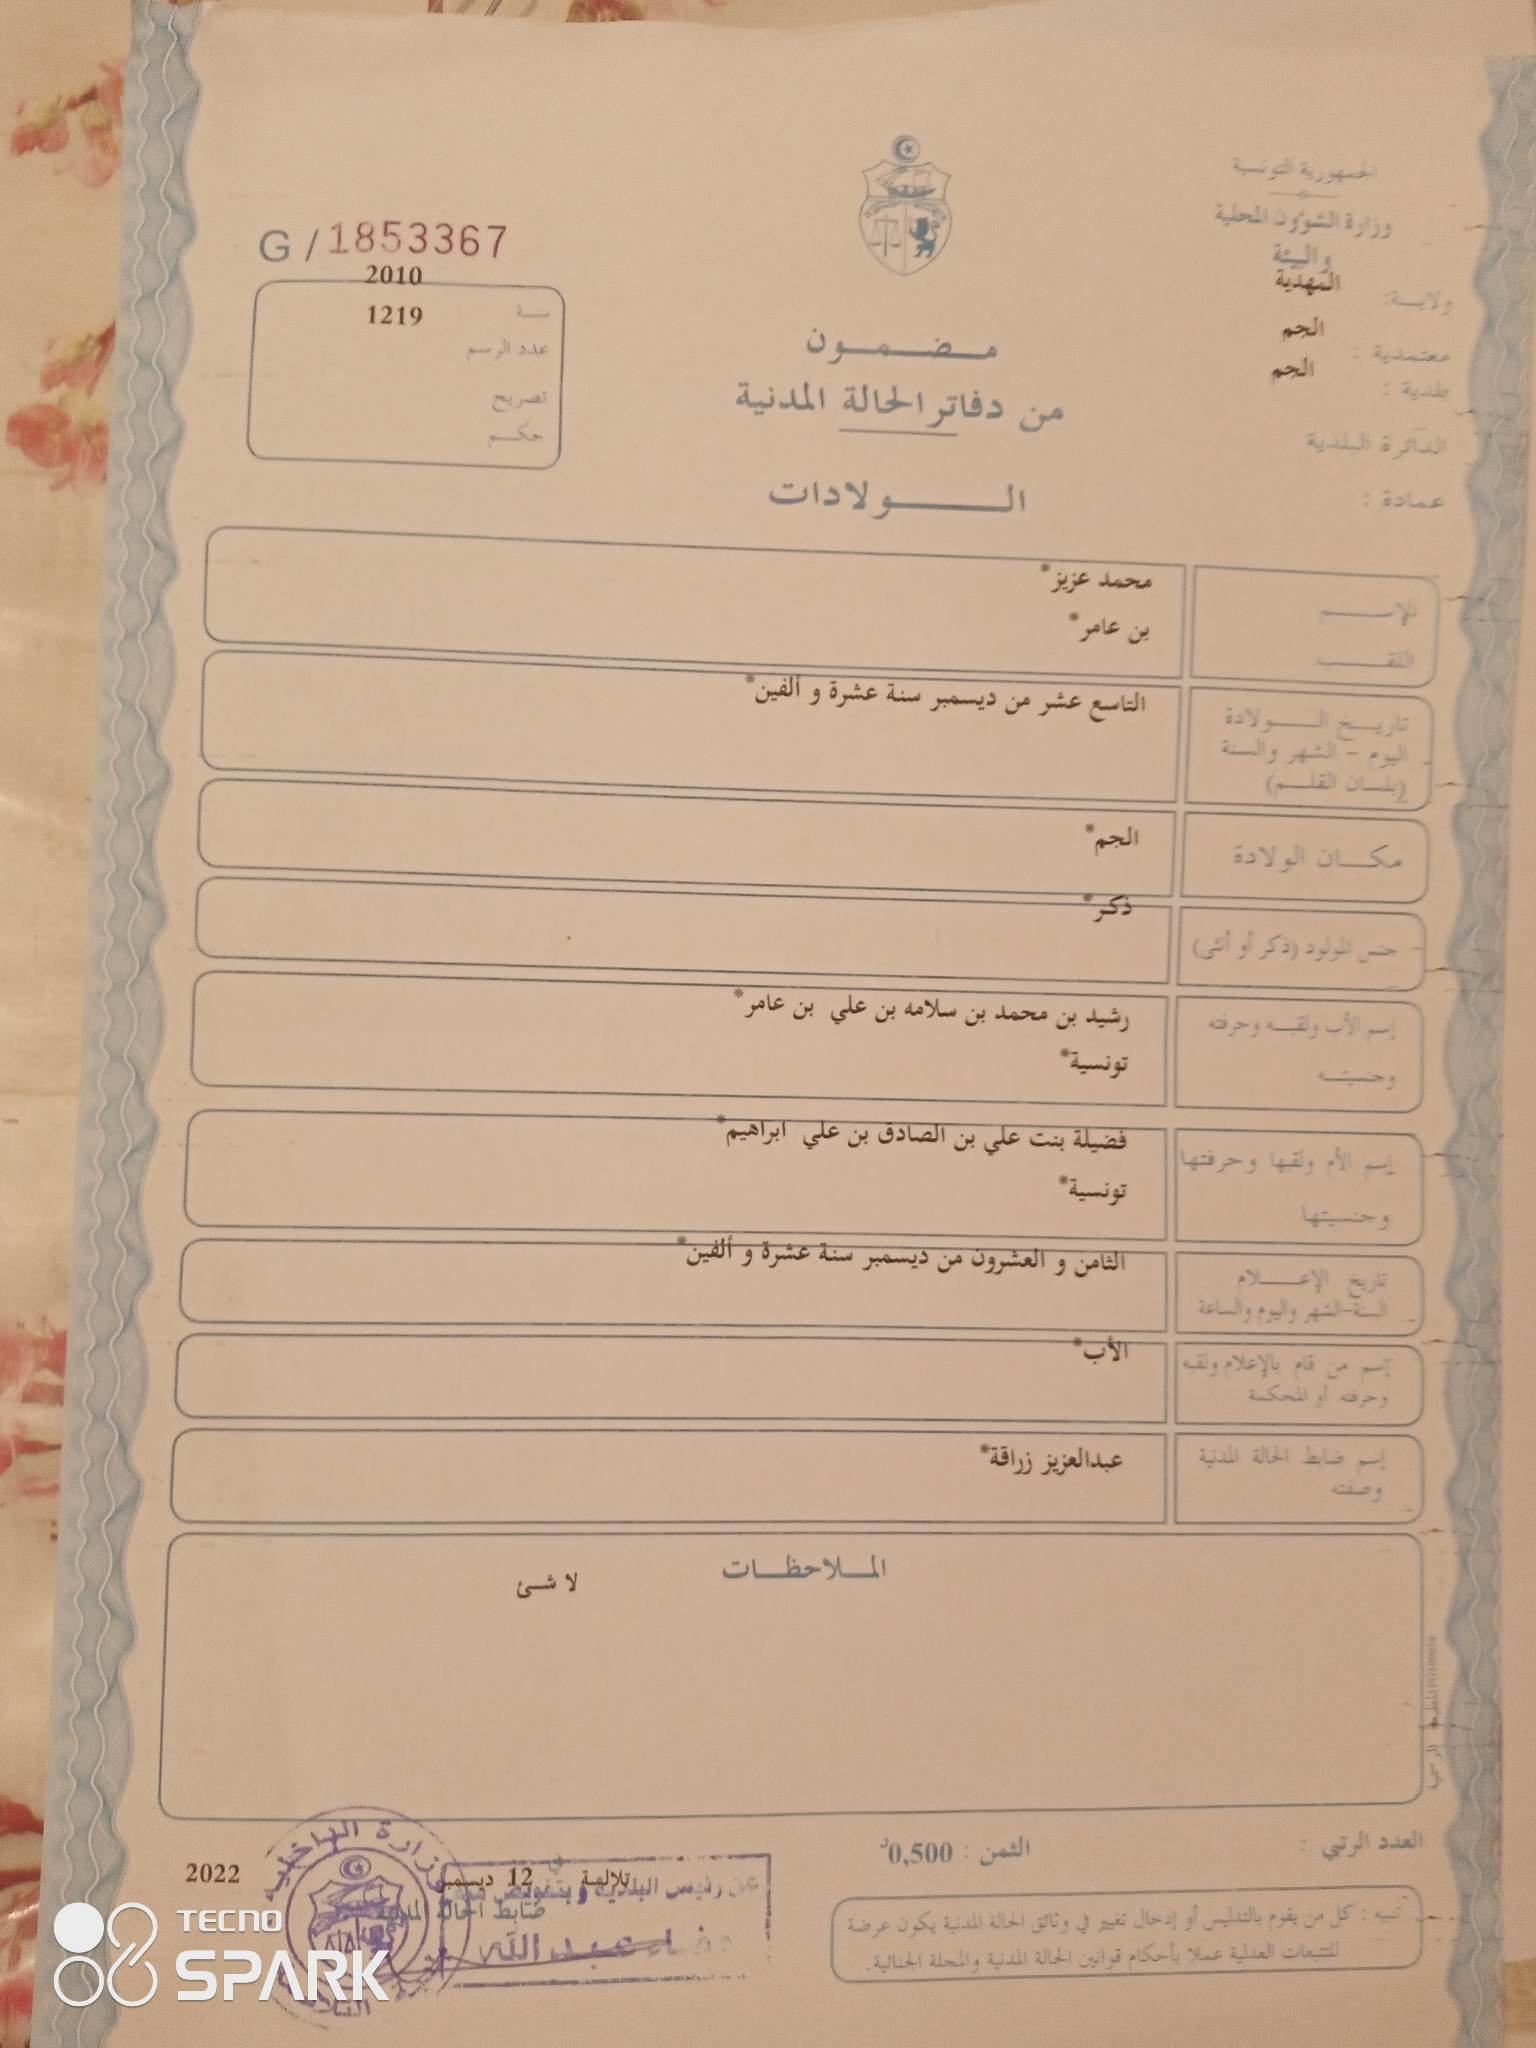 الجمهورية التونسية
وزارة الشؤون المحلية
والبيئة
ولايـــة: المهدية
معتمدية : الجم
بلدية : الجم
الدائرة البلدية
عمادة :
G / 1853367
سنـــة 2010
عدد الرسم 1219
تصريح
حكـــم
مـــضـــمـــون
من دفاتر الحالة المدنية
الـــــولادات
الإســـــم محمد عزيز*
اللقـــب بن عامر*
تاريـــخ الـــــولادة التاسع عشر من ديسمبر سنة عشرة و ألفين*
اليوم – الشهر والسنة
(بلسان القلـــم)
مكـــان الولادة الجم*
جنس المولود (ذكر أو أنثى) ذكر*
إسم الأب ولقبـــه وحرفته رشيد بن محمد بن سلامه بن علي بن عامر*
وجنسيتـــه تونسية*
إسم الأم ولقبها وحرفتها فضيلة بنت علي بن الصادق بن علي ابراهيم*
وجنسيتها تونسية*
تاريخ الإعـــــلام الثامن و العشرون من ديسمبر سنة عشرة و ألفين*
السنة-الشهر واليوم والساعة
إسم من قام بالإعلام ولقبه الأب*
وحرفته أو المحكمة
إسم ضابط الحالة المدنية عبدالعزيز زراقة*
وصفته
المـــلاحظـــات
لا شئ
المطبعة الرسمية
العدد الرتبي :
الثمن : 0,500د
تلالسة في 12 ديسمبر 2022
ضابط الحالة المدنية
عن رئيس البلدية وبتفويض منه
عبد الله
وزارة الداخلية
تنبيه : كل من يقوم بالتدليس أو إدخال تغيير في وثائق الحالة المدنية يكون عرضة
للتتبعات العدلية عملا بأحكام قوانين الحالة المدنية والمجلة الجنائية.
TECNO
SPARK